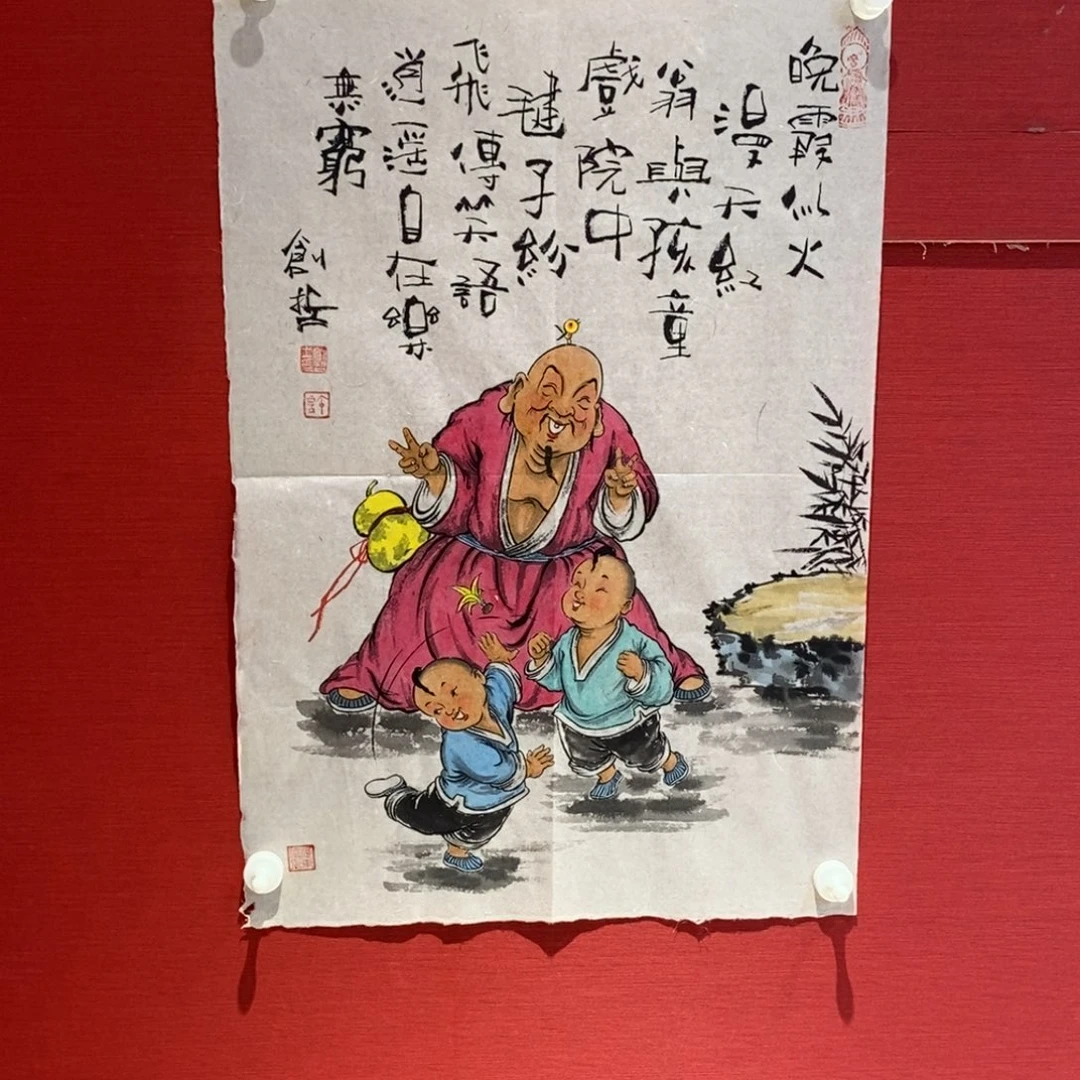 晚霞似火
漫天紅
翁與孩童
戲院中
毽子紛
飛傳笑語
逍遥自在樂
無窮
創哲